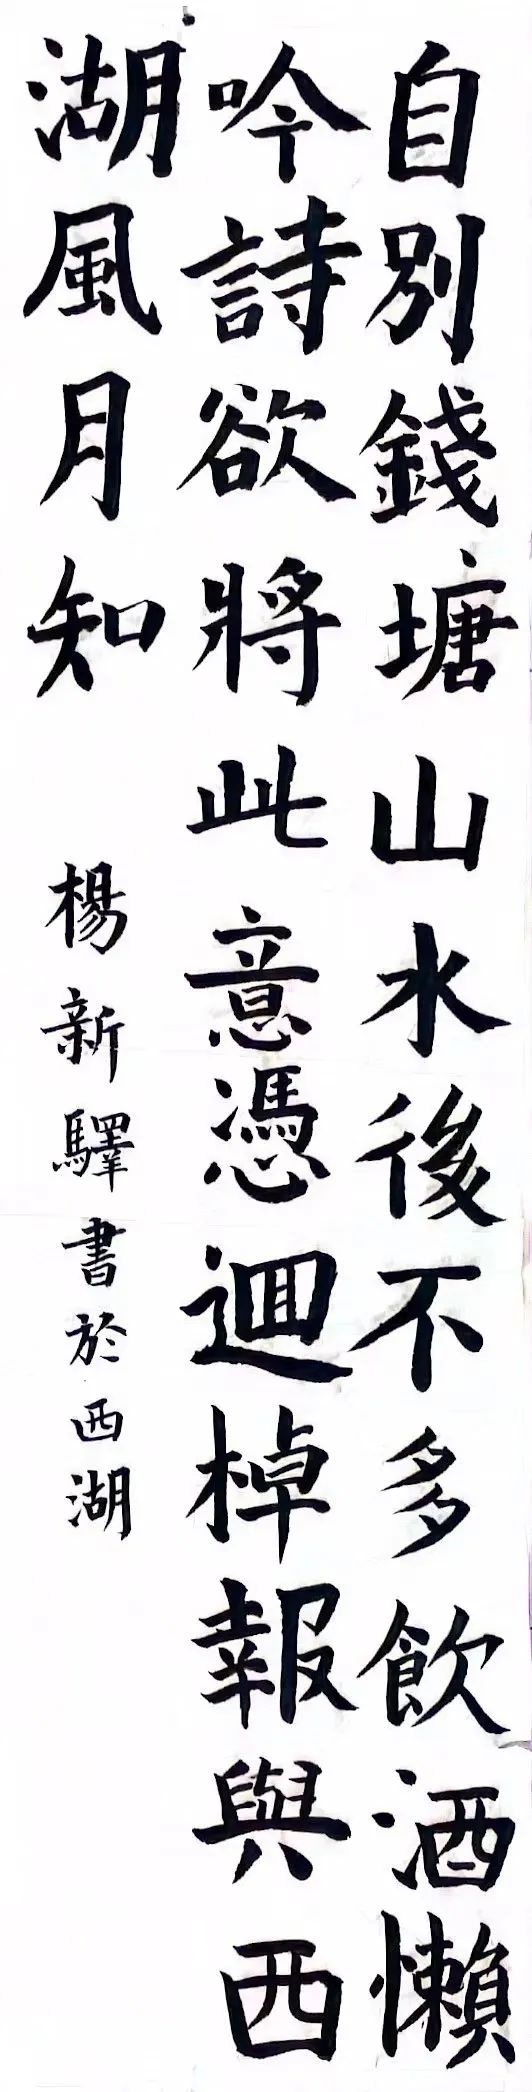 自別錢塘山水後不多飲酒懶
吟詩欲將此意憑迴棹報與西
湖風月知
楊新驛書於西湖